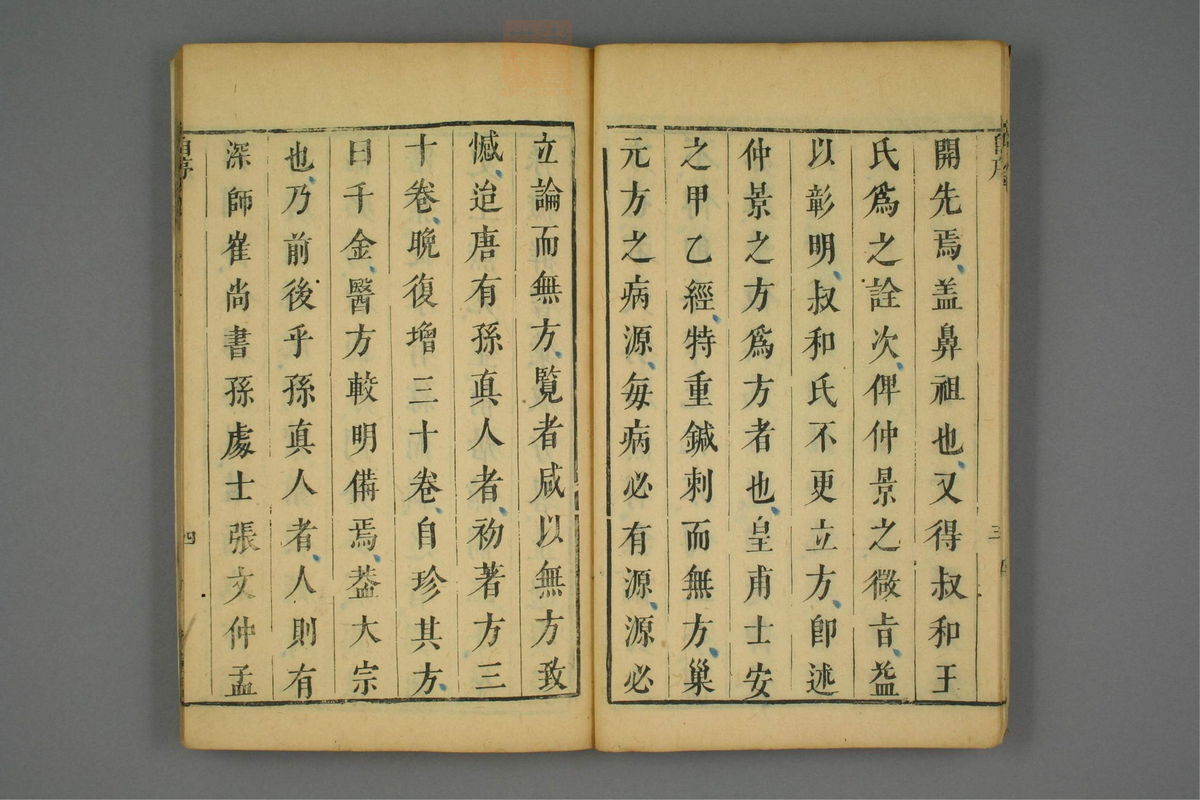 開先焉、盖鼻祖也、又得叔和王
氏爲之詮次、俾仲景之微旨、益
以彰明、叔和氏不更立方、卽述
仲景之方爲方者也、皇甫士安
之甲乙經、特重鍼刺而無方、巢
元方之病源、每病必有源、源必
立論而無方、覽者咸以無方致
憾、迨唐有孫真人者、初著方三
十卷、晚復增三十卷、自珍其方、
曰千金、醫方較明備焉、葢大宗
也、乃前後乎孫真人者、人則有
深師崔尚書孫處士張文仲孟
自序
三
四